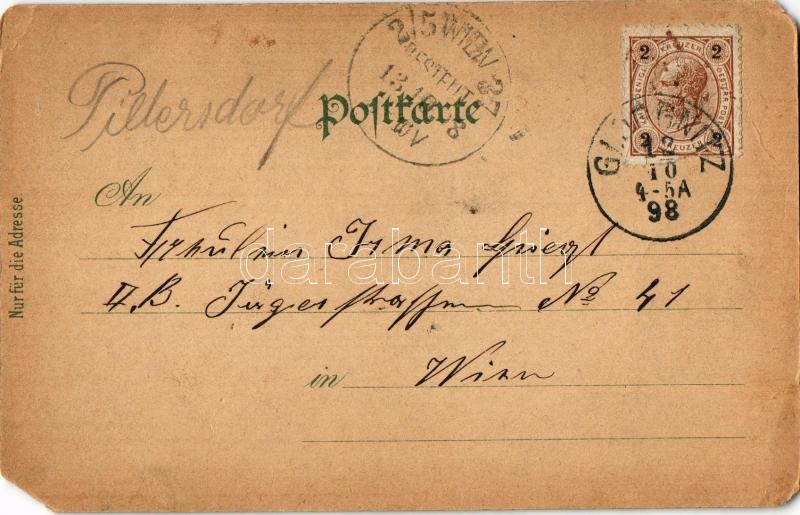 Pillersdorf
Postkarte
2/5 WIEN 37
BESTELLT
13.10.98
WV
2 KREUZER 2
2 KREUZER 2
GLOGGNITZ
12
10
4-5A
98
An
Fräulein Irma
II. B. Jägerstrasse No 41
in Wien
Nur für die Adresse.
darabanth